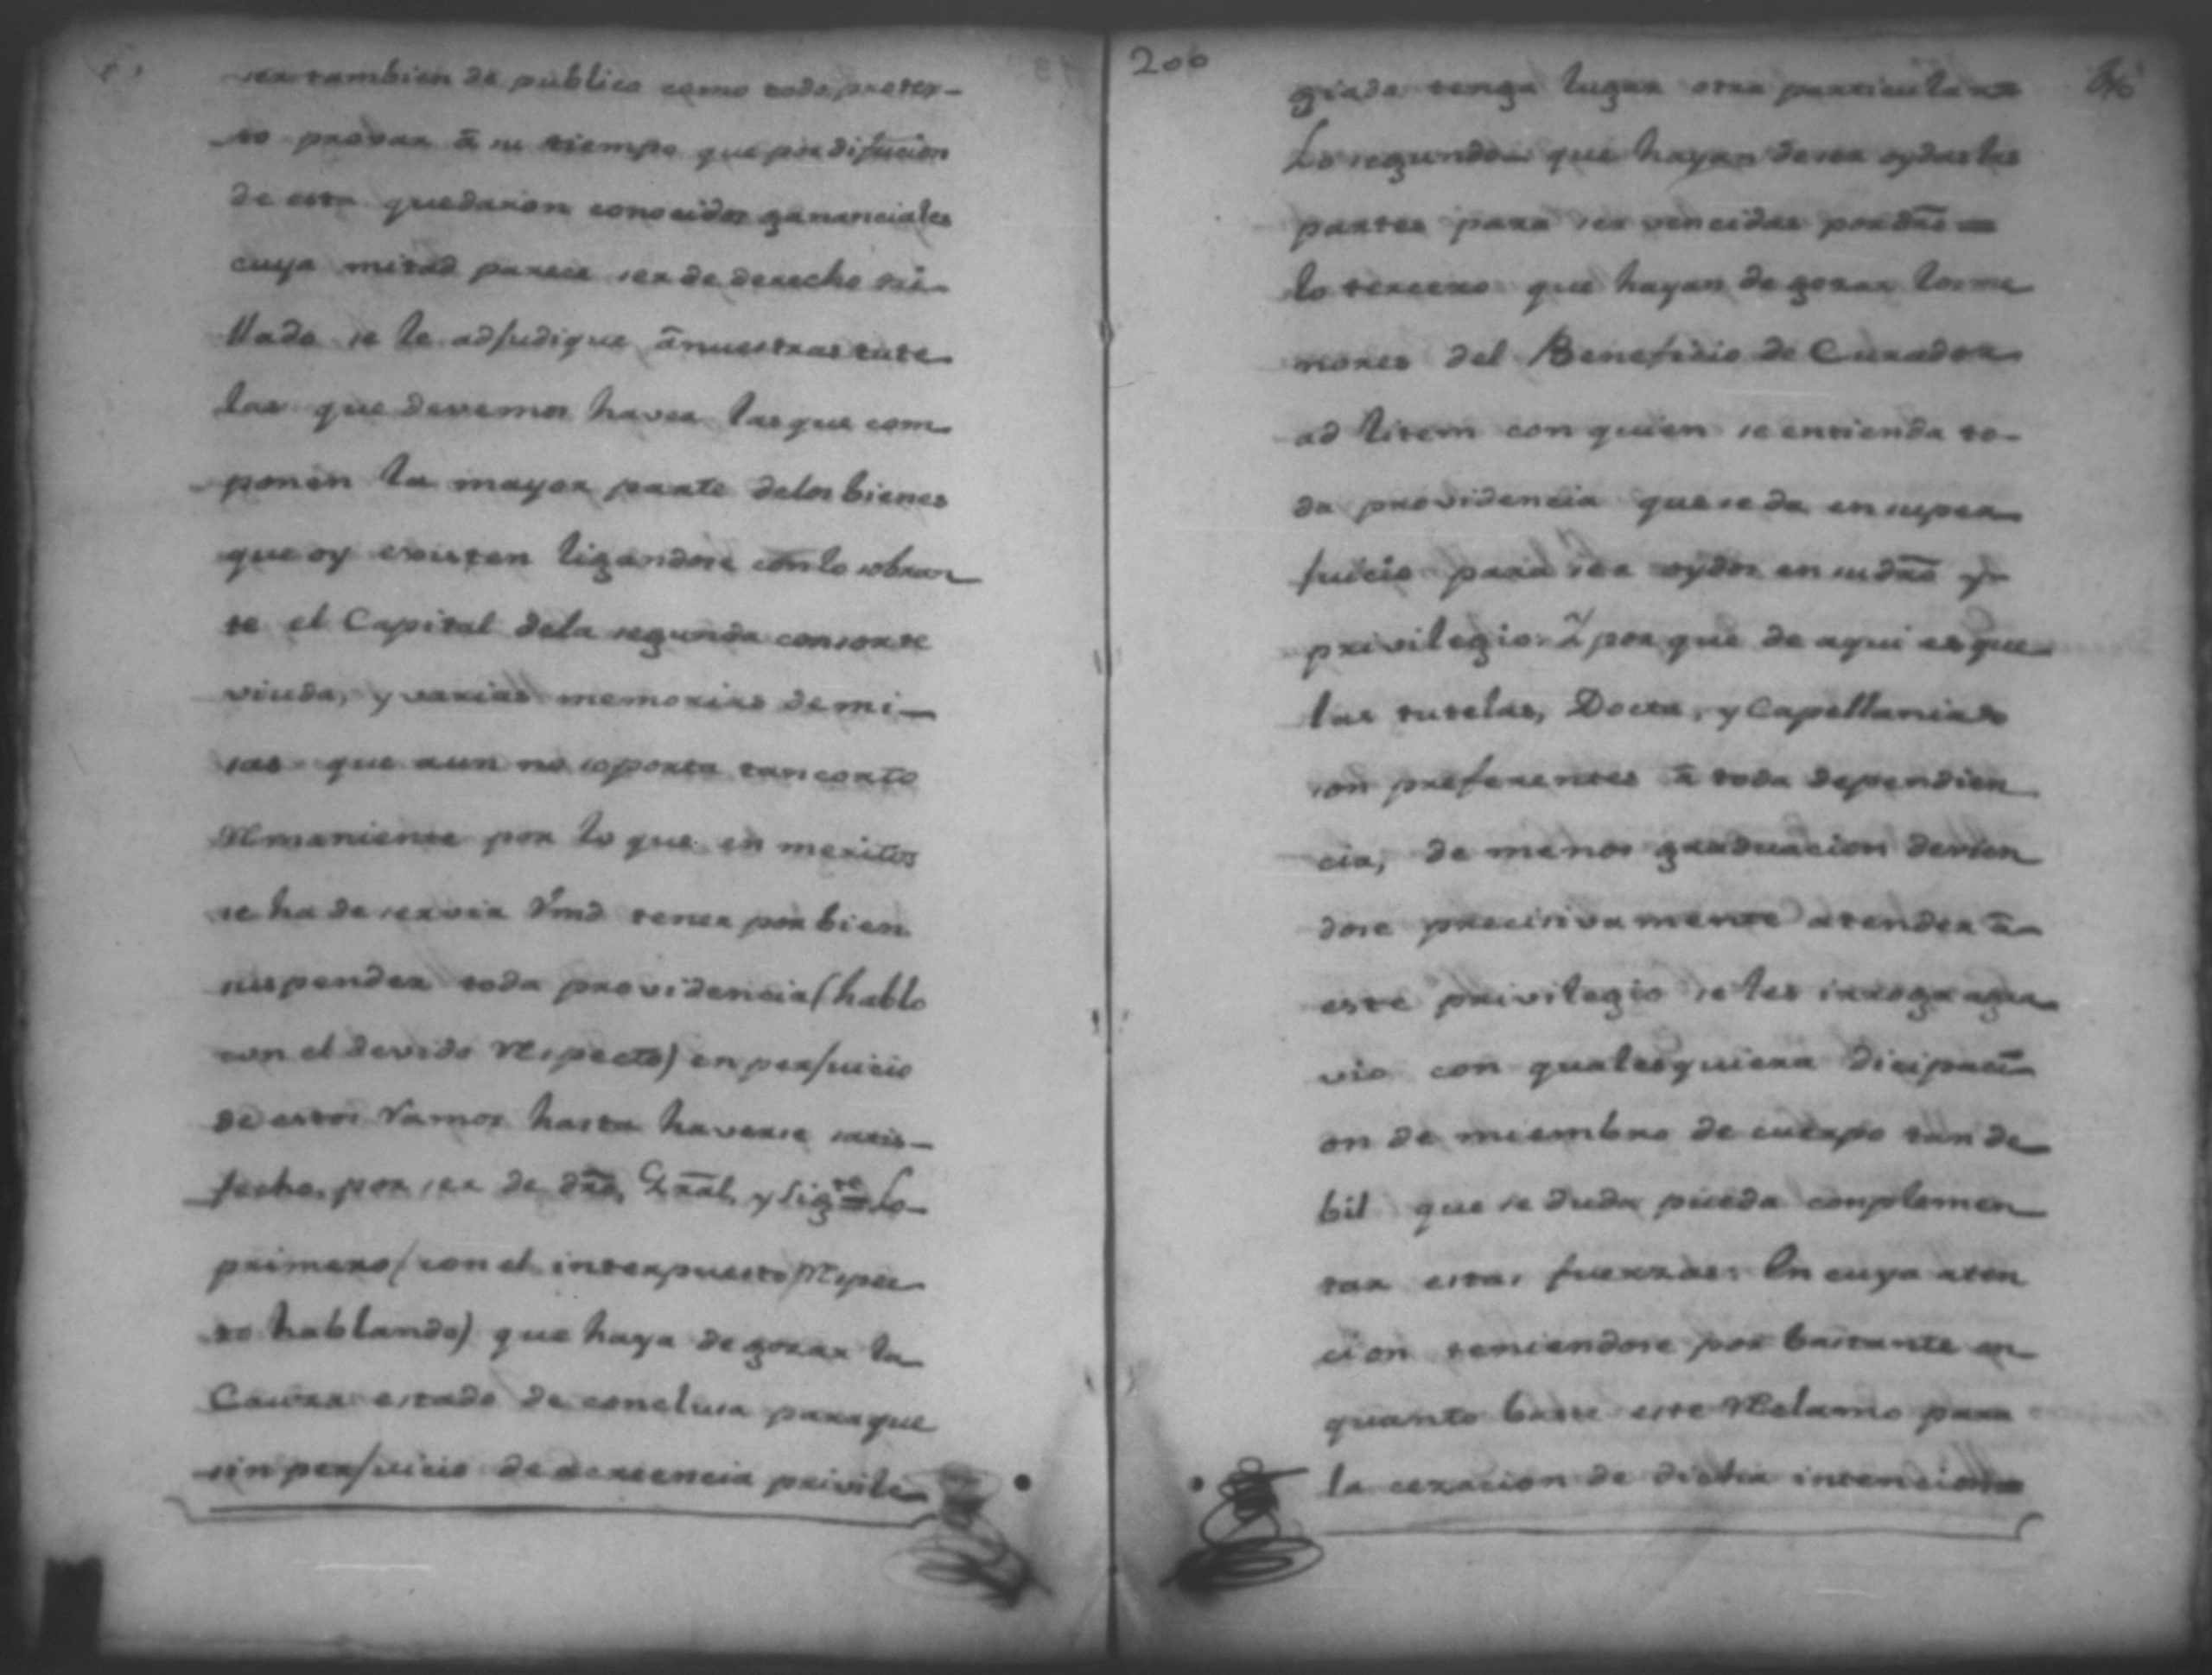 ser tambien de publico como todo protex-
to provar â su tiempo que por difucion
de esta quedaron conocidos gananciales
cuya mitad parece ser de derecho tri-
llado se le adjudique â nuestras tute
las que devemos haver las que com
ponen la mayor parte delos bienes
que oy existen ligandose con lo sobran
te el Capital dela segunda consorte
viuda, y varias memorias de mi-
sas que aun no soporta tan corto
Remaniente por lo que en meritos
se ha de servir Vmd tener por bien
suspender toda providencia (hablo
con el devido Respecto) en perjuicio
de estos Ramos hasta haverse satis-
fecho, por ser de dro, Gral, y sigte = Lo
primero (con el interpuesto Respec
to hablando) que haya de gozar la
Causa estado de conclusa para que
sin perjuicio de acreencia privile
200
giada tenga lugar otra particular =
Lo segundo que hayan de ser oydas las
partes para ser vencidas por dro =
lo tercero que hayan de gozar los me
nores del Beneficio de Curador
ad litem con quien se entienda to-
da providencia que se da en su per
juicio para ser oydos en su dro y
privilegio: Y por que de aqui es que
las tutelas, Docta, y Capellanias
son preferentes â toda dependien
cia, de menor graduacion devien
dose precisivamente atender â
este privilegio se les irroga agra
vio con qualesquiera dicipaci
on de miembro de cuerpo tan de
bil que se duda pueda complemen
tar estas fuerzas: En cuya aten
cion teniendose por bastante en
quanto baste este Reclamo para
la cezacion de dicha intencion =